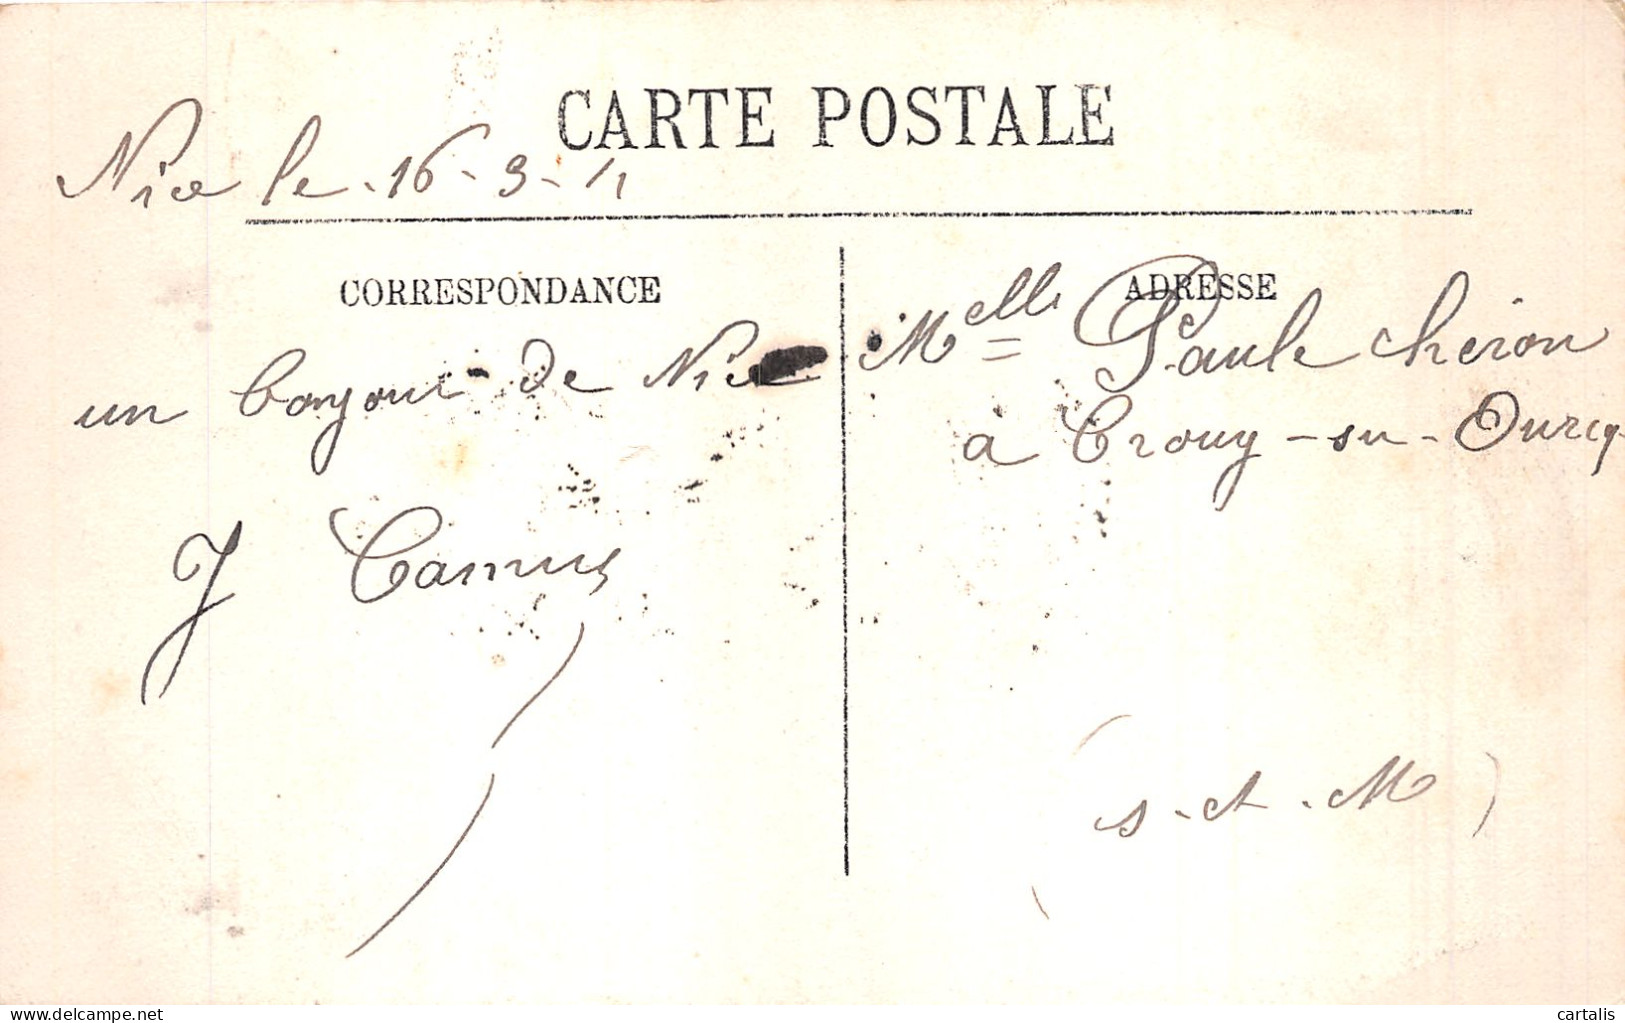 CARTE POSTALE
Nice le 16-3-11
CORRESPONDANCE
un bonjour de Nice
J Camus
ADRESSE
Melle Paule Chéron
à Crouy-sur-Ourcq
(S-et-M)
delcampe.net
cartalis